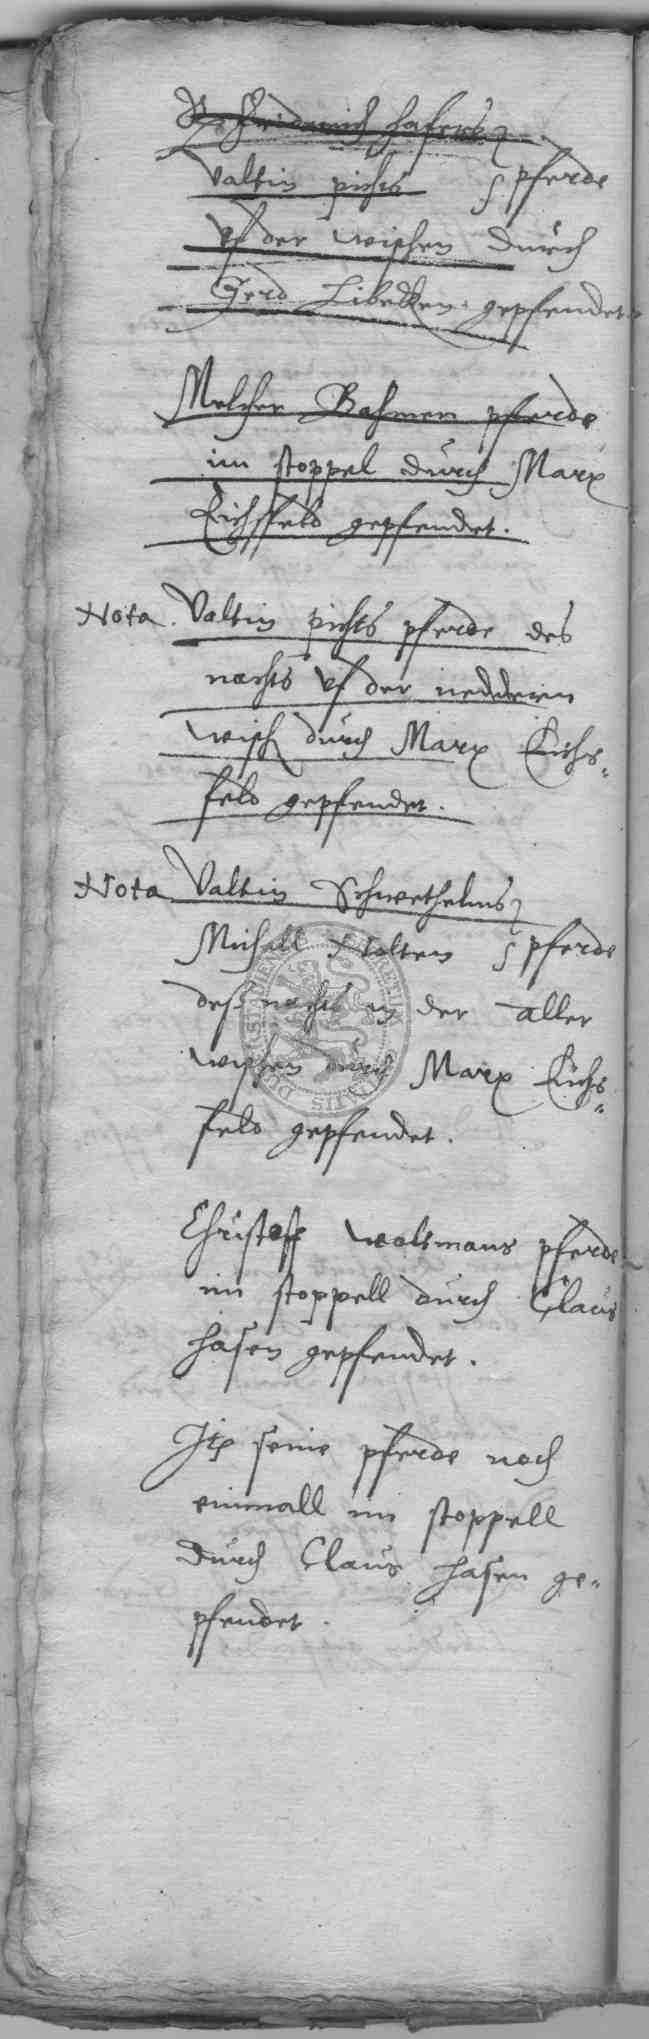 Friderich Hasens
Valtin pichts pferde
vf der wischen durch
Gerd Libecken gepfendet.
Melcher Bahmen pferde
im stoppel durch Marx
Eichsfeld gepfendet.
Nota. Valtin pichts pferde des
nachts vf der nedderen
wisch durch Marx Eichs-
feld gepfendet.
Nota Valtin Schwethelms
Michall Stolten pferde
deß nachts in der aller
wischen durch Marx Eichs-
feld gepfendet.
Christoff woltmans pferde
im stoppell durch Claus
hasen gepfendet.
Itz seine pferde noch
einmall im stoppell
durch Claus hasen ge-
pfendet.